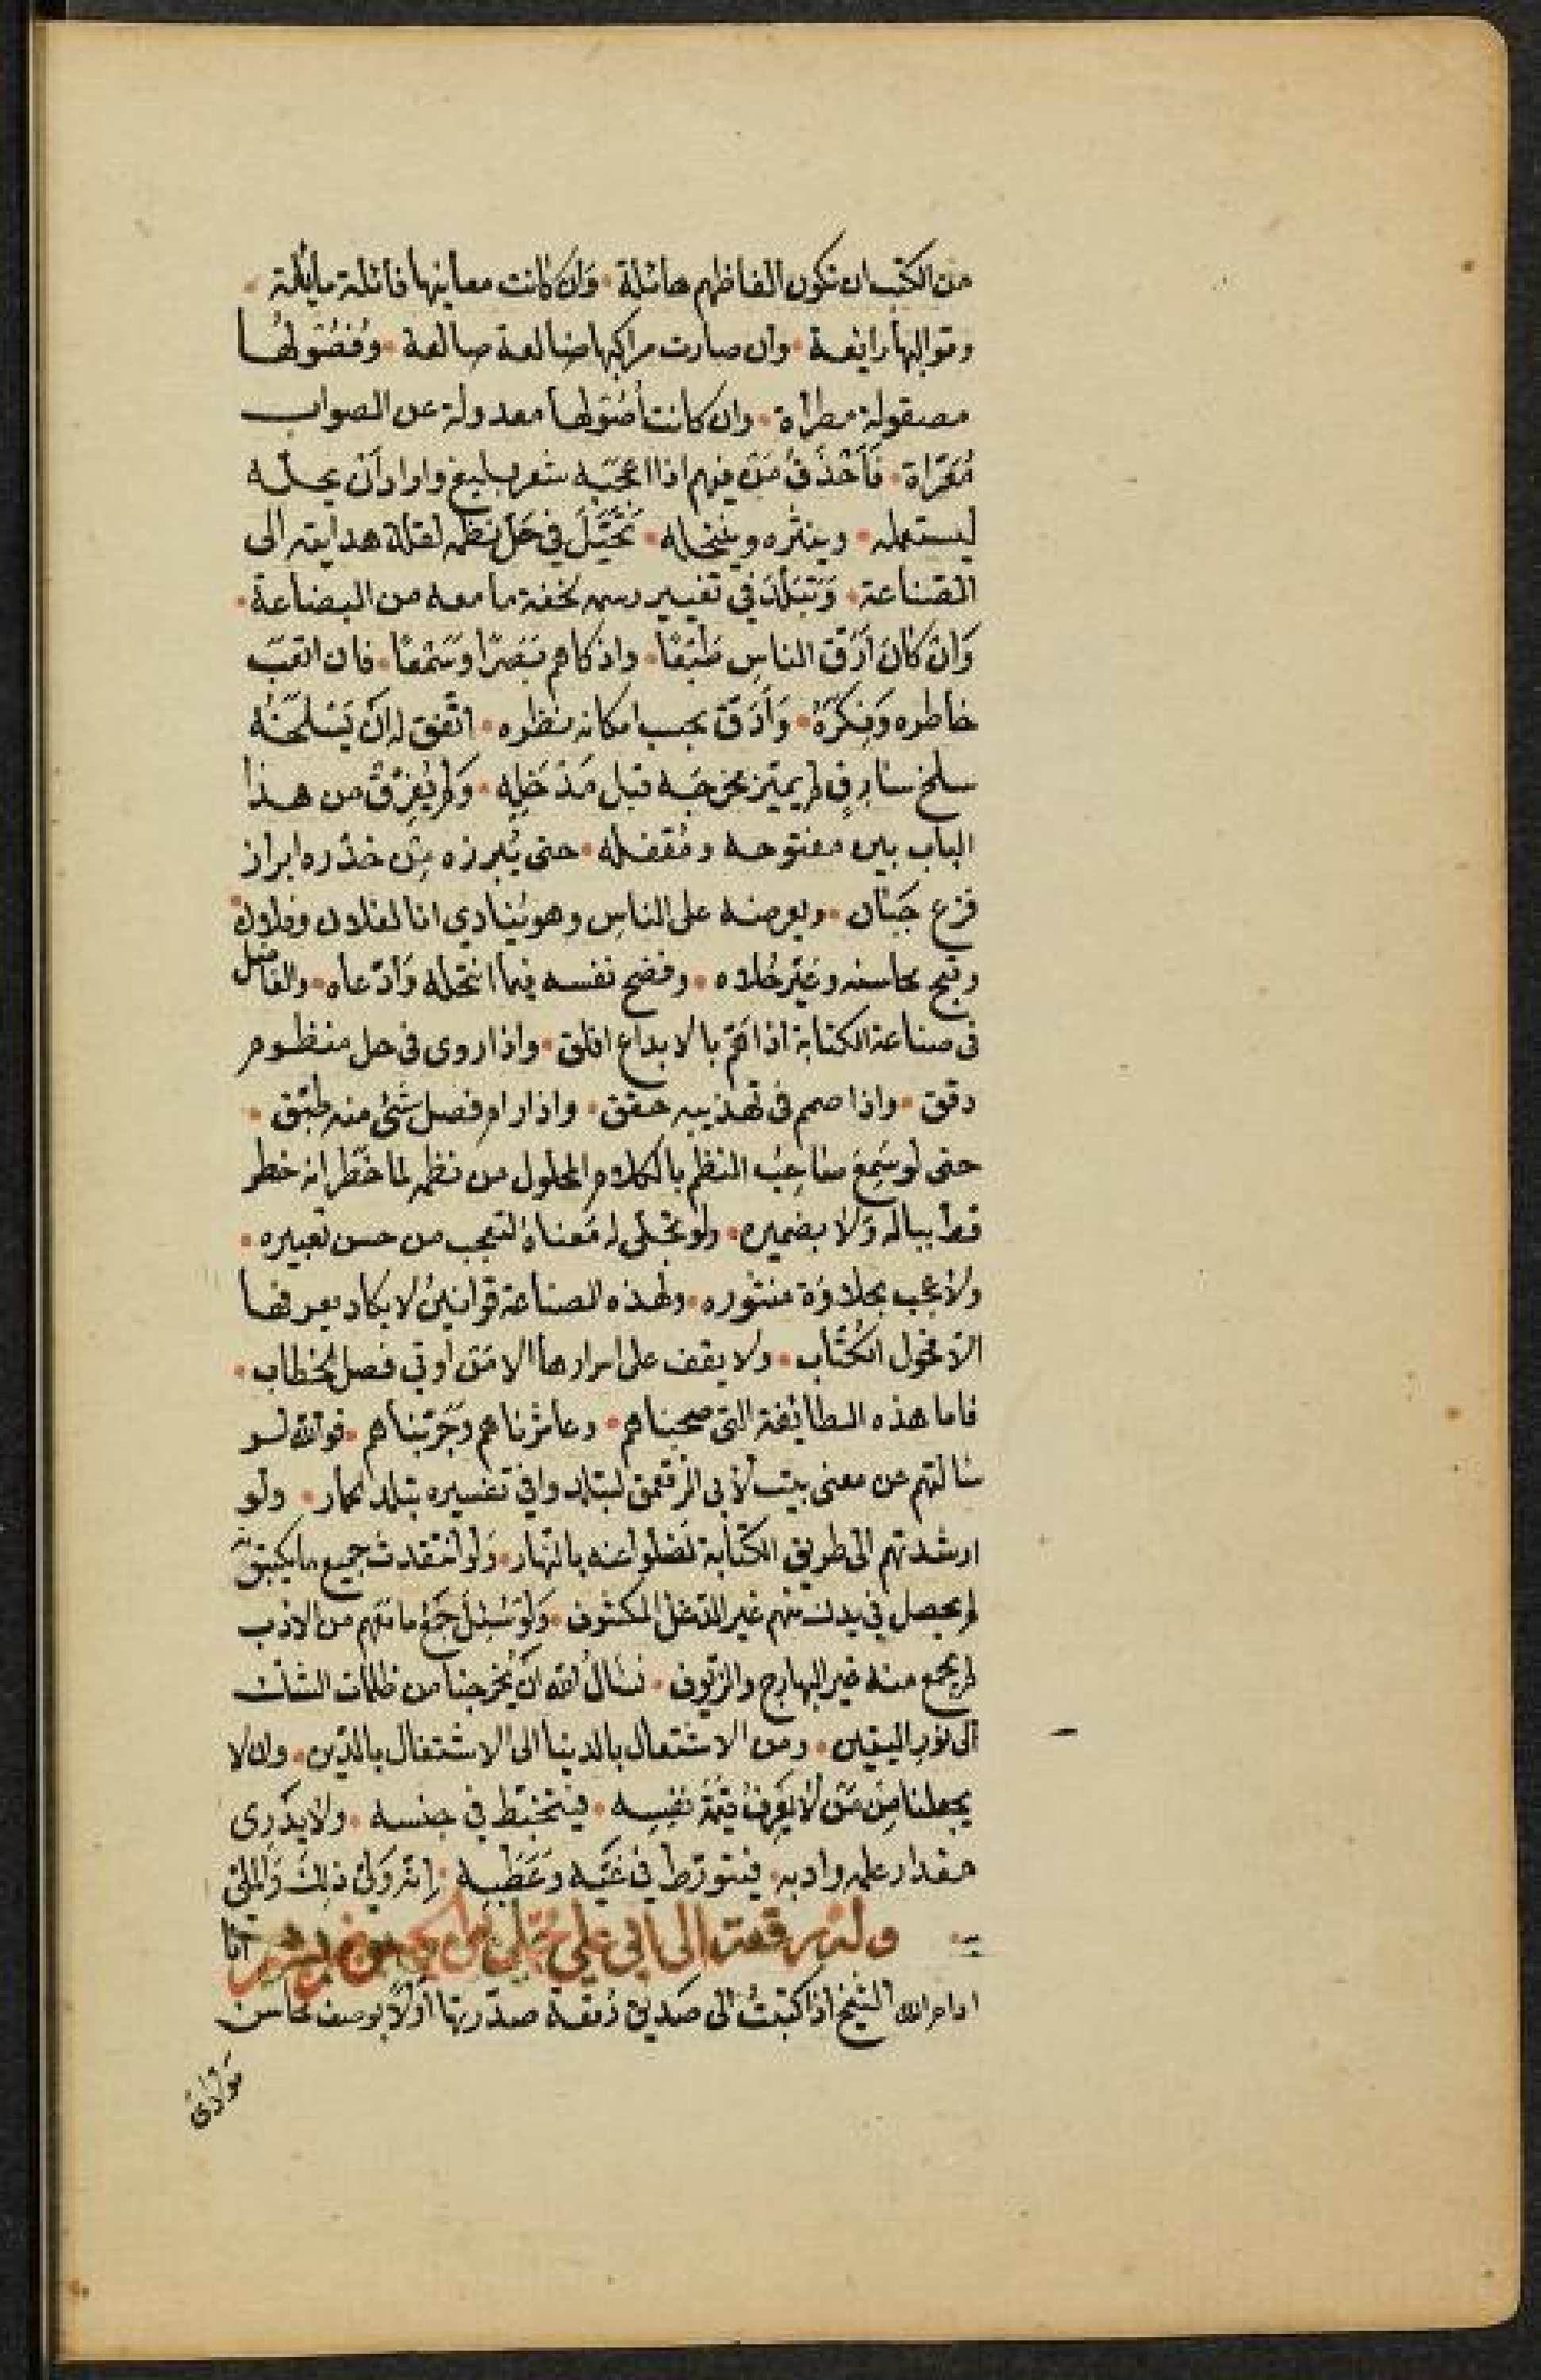 من الكتب ان تكون الفاظهم هائلة • وَان كانت معاينها فائلة مائلة •
وقوالبها رايعة • وان صارت مراكبها ضالعة صالعة • وفُصُولُهَا
مصقولة مطراة • وان كانت أصُولها معدولة عن الصواب
مُعَرّاة • فَأحْذَقُ مَن فيهم اذا اعجَبَه شعر بليغ واراد أنْ يحله
ليستعمله • وينثره وينتحله • تَخَيَّلَ في حَلّ نظمه لقلة هدايته الى
الصّناعة • وَتَبَلّدَ في تغيير رسمه لخفة ما معه من البضاعة •
وَانْ كانَ أرَقّ الناسِ طَبْعًا • واذكاهم بَصَرًا وَسَمْعًا • فان اتعَبَ
خاطره وَفِكرَهُ • وَأَدَقّ بحسب امكانه نظره • اتّفق له انْ يَسْلخَهُ
سلخ سَارِقٍ لم يميّز مخرَجَه قبل مَدْخَلِه • وَلم يُفَرّق من هذا
الباب بين مفتوحه ومُقفَلِه • حتى يُبرزه مِن خدْره ابراز
فزع جَبَان • ويعرضه على الناسِ وهو يُنادي انا لفلان وفلان
وقبح محاسنه وغيّر حُلاه • وفضح نفسه فيما انتحله وَادّعاه • والفاضل
في صناعة الكتابة اذا همّ بالابداع افلق • واذا روى في حل منظوم
دقق • واذا صمم في تهذيبه حقق • واذا رام فصل شئ منه طبّق •
حتى لو سَمِعَ صاحِبُ النظم بالكلام المحلول من نظمه لما خَطَر انه خطر
قط بباله وَلا بضميره • ولو تجلى له مَعناهُ لتعجب من حسن تعبيره •
ولأعجب بحلاوَة منثوره • ولهذه الصناعة قوانينُ لا يكاد يعرفها
الّا فحُول الكُتّاب • ولا يقف على اسرارها الا مَن اوتي فصل الخطاب •
فاما هذه الطائفة التي صحبناهم • وعاشرناهم وَجَرّبناهم • فوالله لو
سالتهم عن معنى بيت لأبي الرقعمق لتبلدوا في تفسيره تبلد الحمار • ولو
ارشدتهم الى طريق الكتابة لضلوا عنه بالنهار • وَلو انتقدت جميع ما يكتبونه
لم يحصل في يدك منهم غير الدغل المكشوف • وَلوْ سُئِلَ جَميْع ما معهم من الادب
لم يجمع منه غير البهارج والزيوف • نسْالُ الله انْ يُخرجنا من ظلمات الشك
الى نور اليقين • ومن الاشتغال بالدنيا الى الاشتغال بالدّين • وان لا
يجعلنا مِن مَن لا يَعرفُ قيْمَةَ نفسِه • فيتخبّط في جنسه • ولا يدْرى
مقدار علمه وادبه • فيتورّط في غَيّه وَعَطَبِه • انه وَليّ ذلك وَالمَلِيّ
به •
وله رقعة الى ابي علي انا
ادام الله الشيخ اذا كتبتُ الى صَديق رُقعة صدّرتها أوّلًا بوصف محاسن